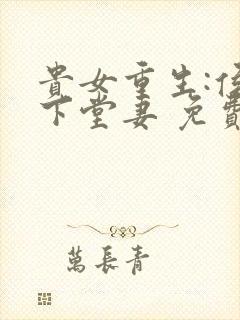 貴女重生:侯
下堂妻 免費
萬長青